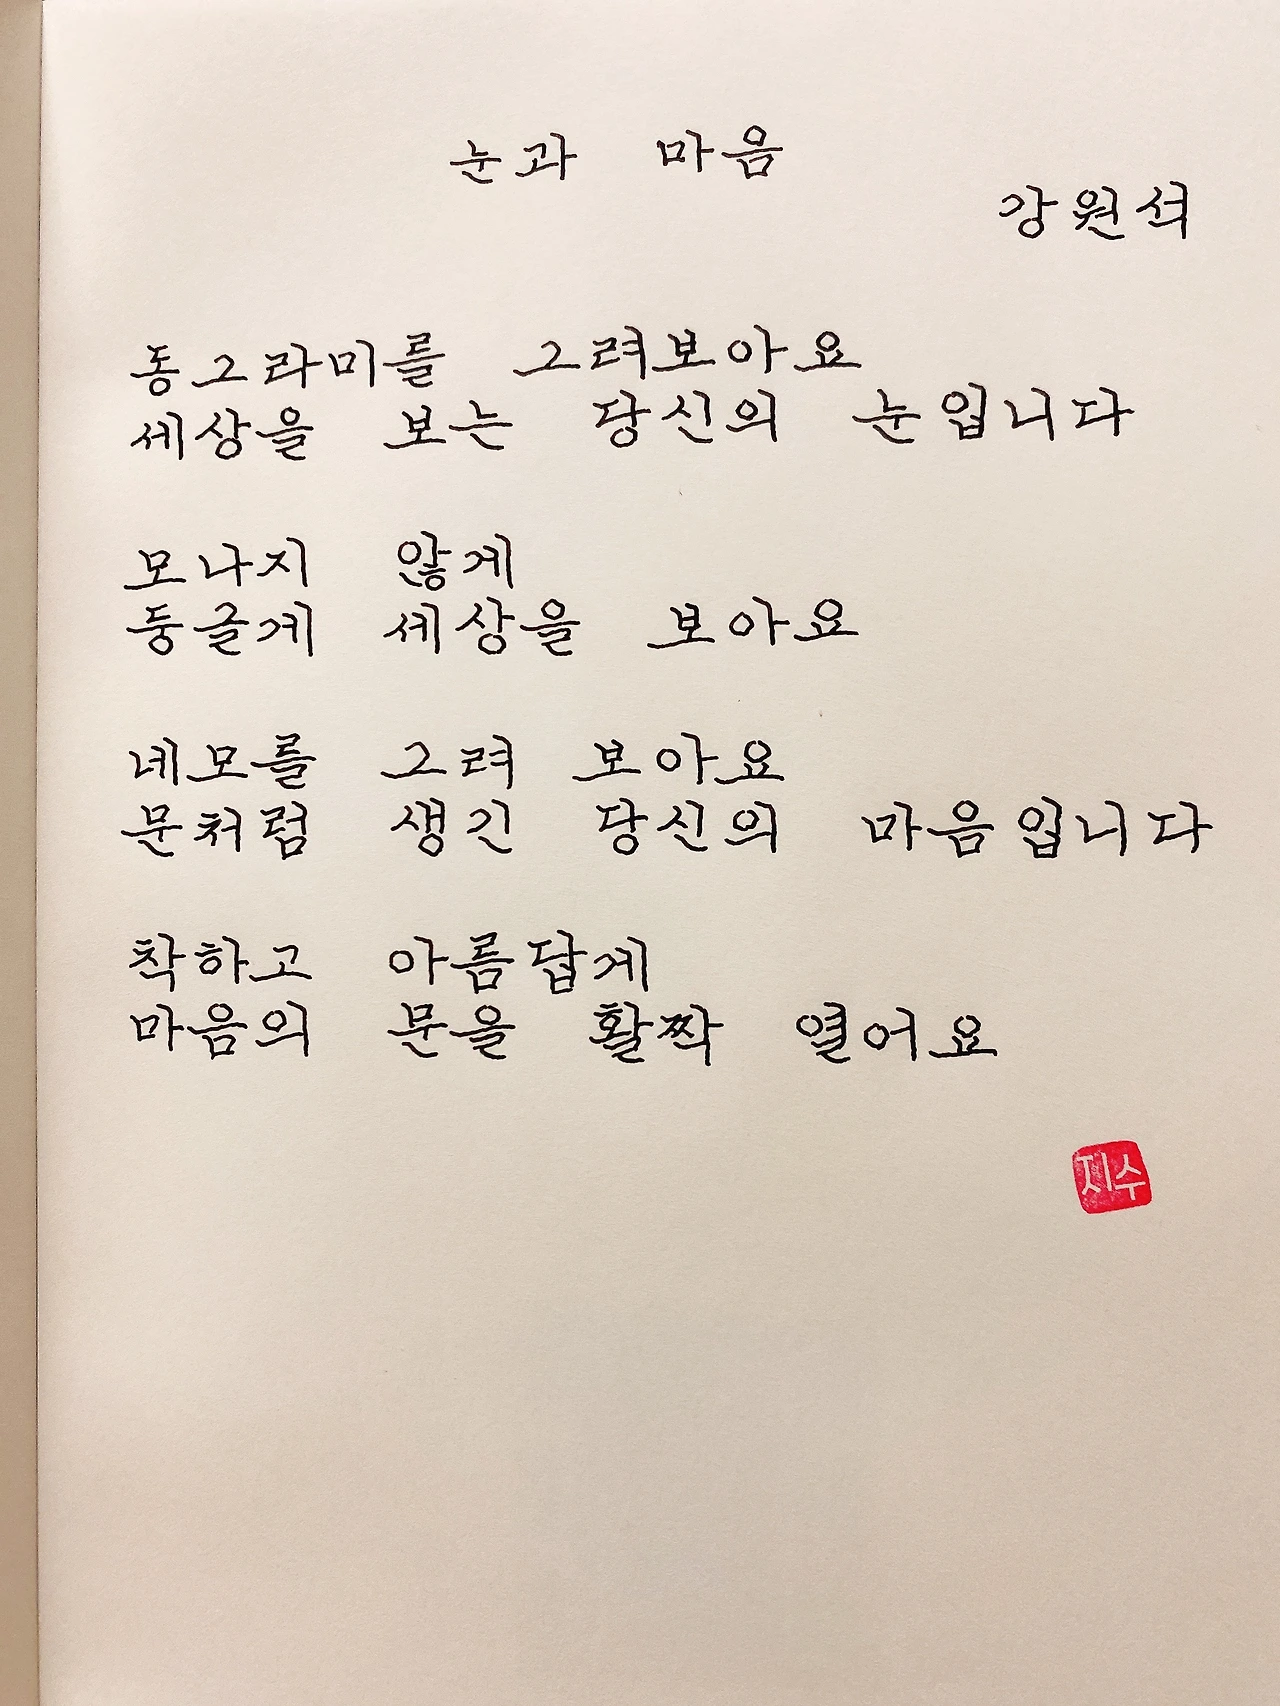 눈과 마음
강원석
동그라미를 그려보아요
세상을 보는 당신의 눈입니다
모나지 않게
둥글게 세상을 보아요
네모를 그려 보아요
문처럼 생긴 당신의 마음입니다
착하고 아름답게
마음의 문을 활짝 열어요
지수